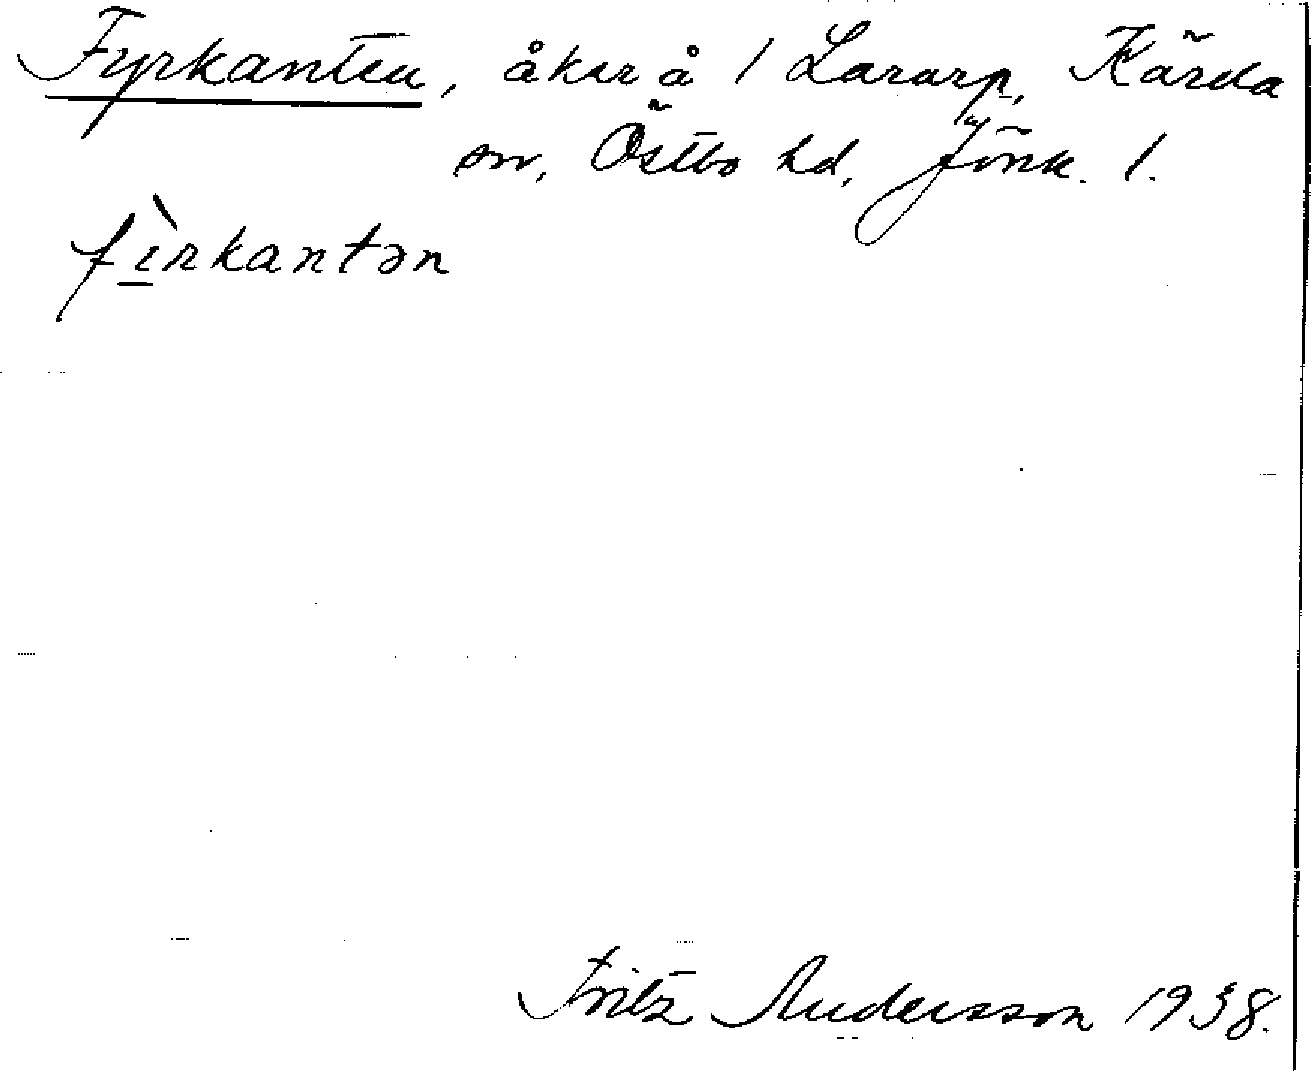 Fyrkanten, åker å / Lararp, Kärda
sn, Östbo hd, Jönk. l.
fìrkantən
Fritz Andersson 1938.